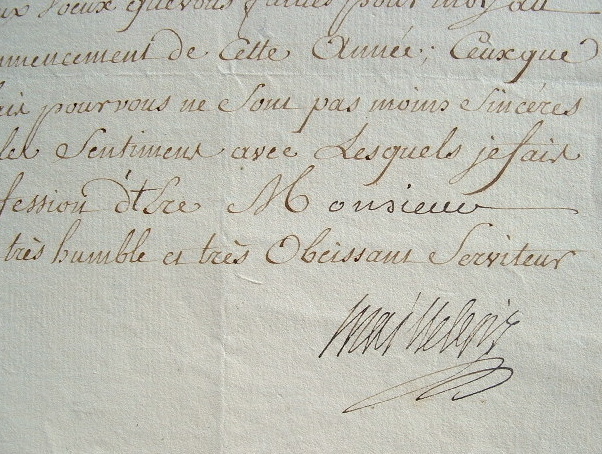 ux voeux que vous faites pour moi, au
mmencement de Cette Année; Ceux que
ais pour vous ne Sont pas moins Sincéres
les Sentimens avec Lesquels je fais
fession d'tre Monsieur
très humble et très Obeissant Serviteur